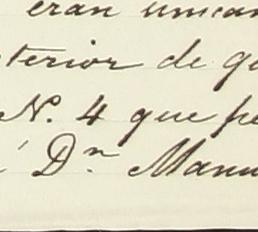 eran unica
terior de g
N. 4 que pe
á Dn Manu